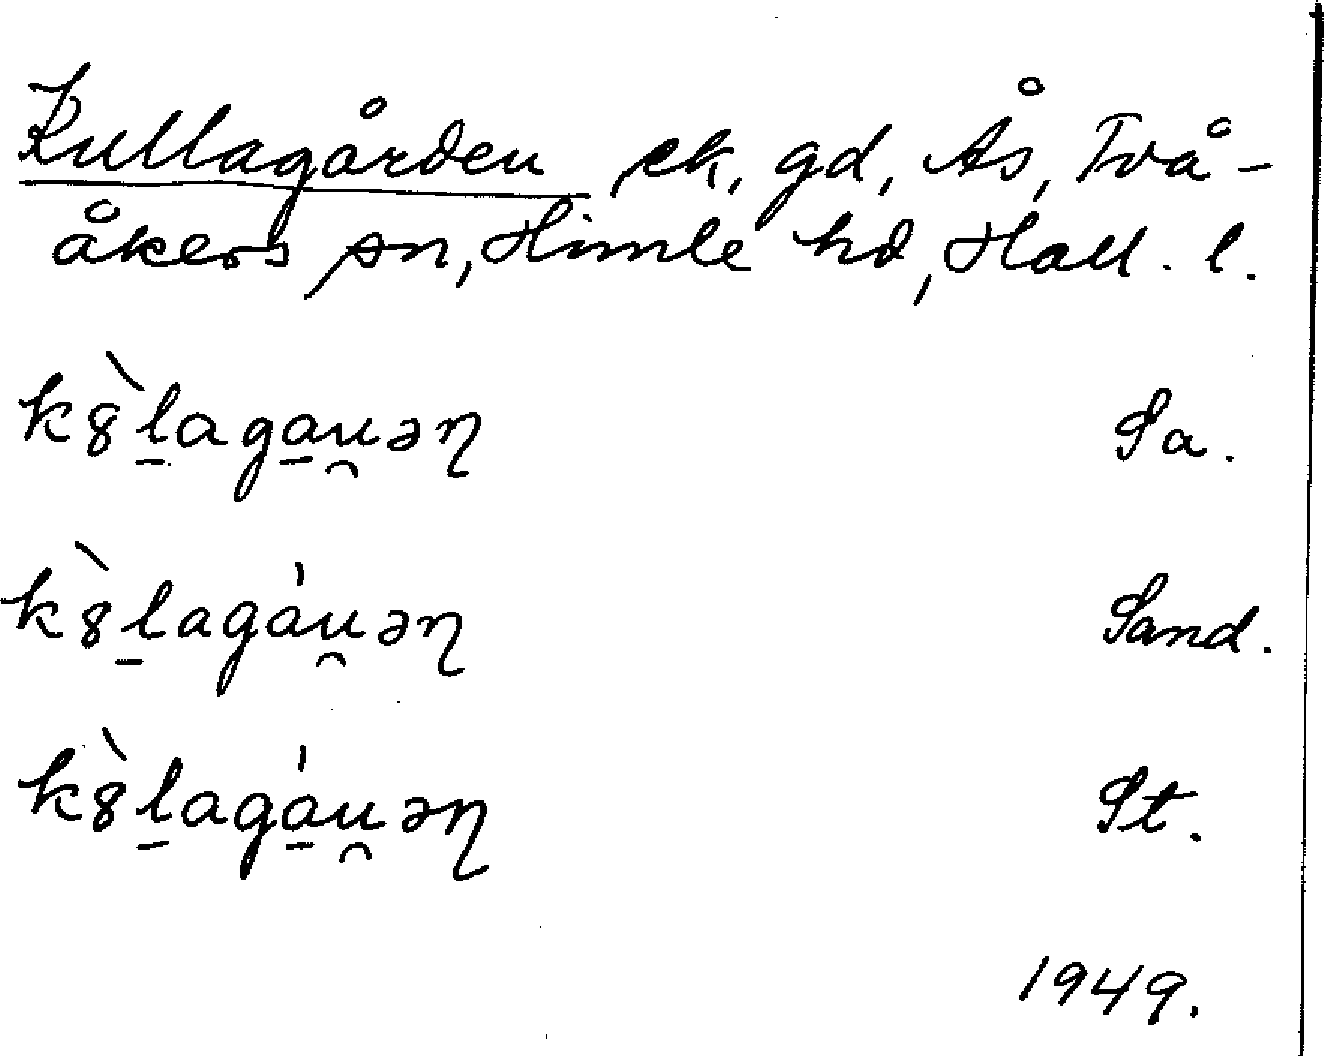 Kullagården ek, gd, Ås, Två-
åkers sn, Himle hd, Hall. l.
kò̀8l̠aga̠u̯əɳ Sa.
k8̀l̠agáu̯əɳ Sand.
k8̀l̠agá̠u̯əɳ St.
1949.